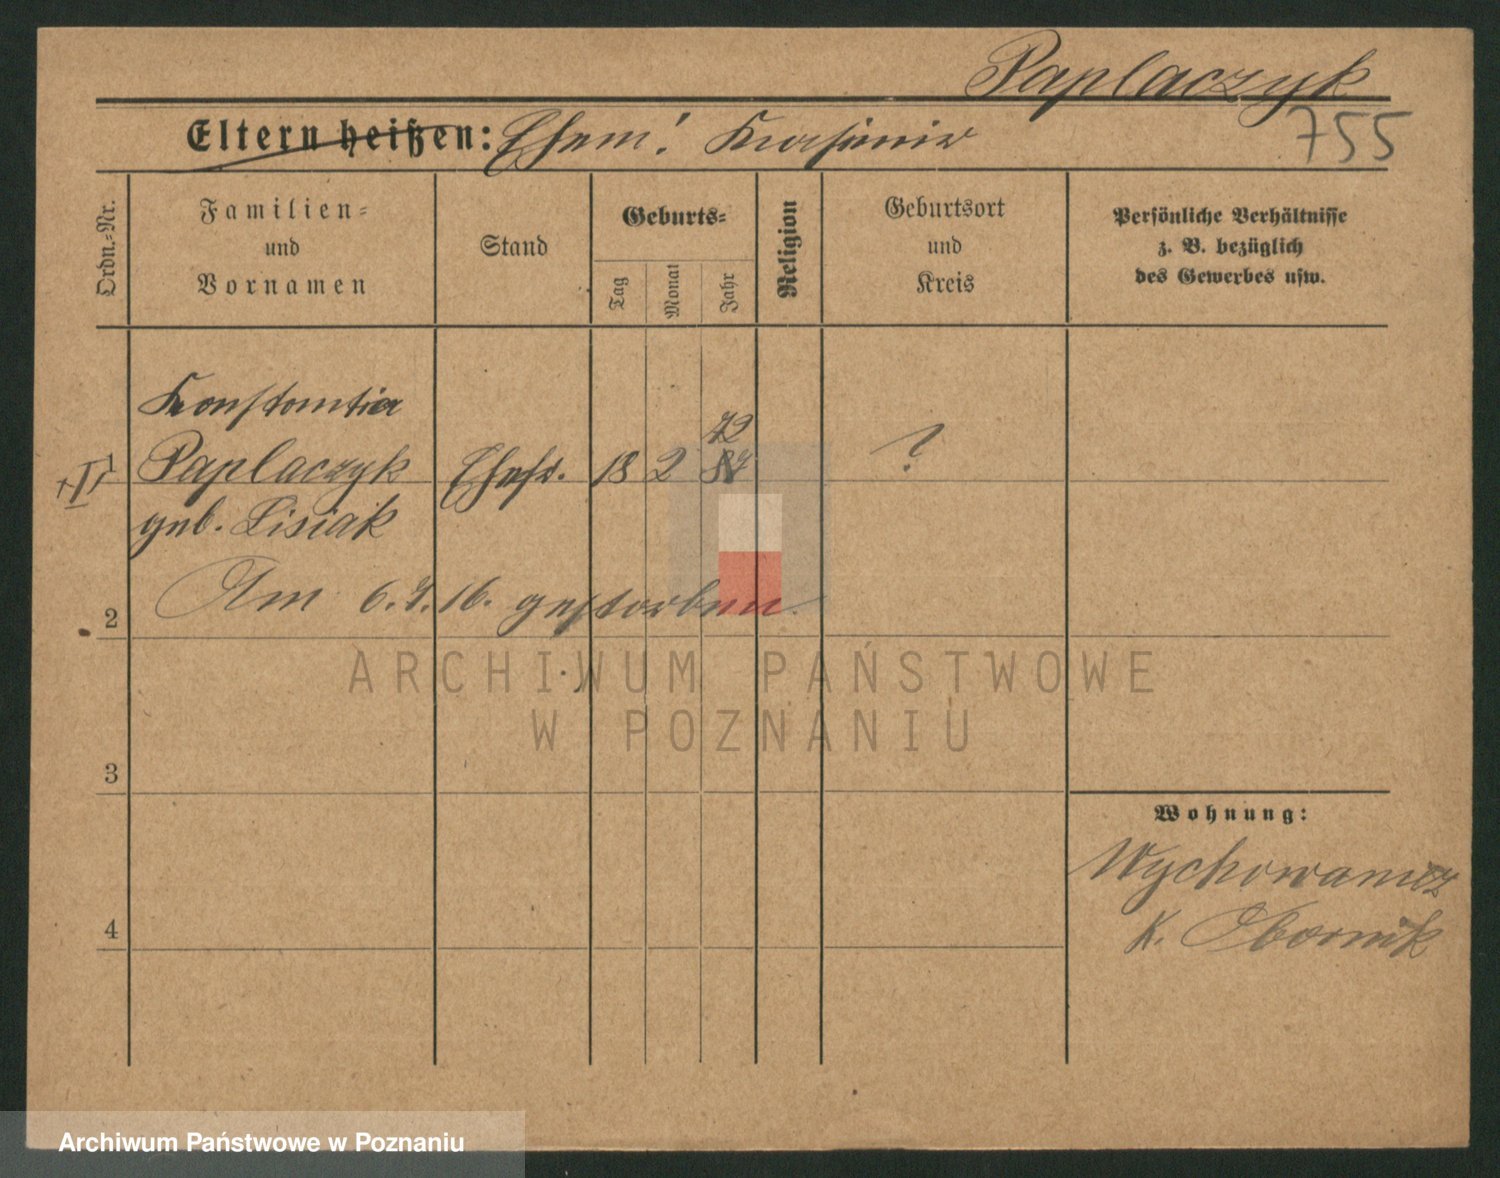 Paplaczyk
Eltern heißen: Ehem: Kasimir
755
Ordn.-Nr.
Familien-
und
Vornamen
Stand
Geburts-
Tag
Monat
Jahr
Religion
Geburtsort
und
Kreis
Persönliche Verhältnisse
z. B. bezüglich
des Gewerbes usw.
Konstantia
72
Paplaczyk Ehefr. 18 2 ?
geb. Lisiak
Am 6.9.16. gestorben.
2
ARCHIWUM PAŃSTWOWE
W POZNANIU
3
Wohnung:
Wychowaniec
K. Obornik
4
Archiwum Państwowe w Poznaniu